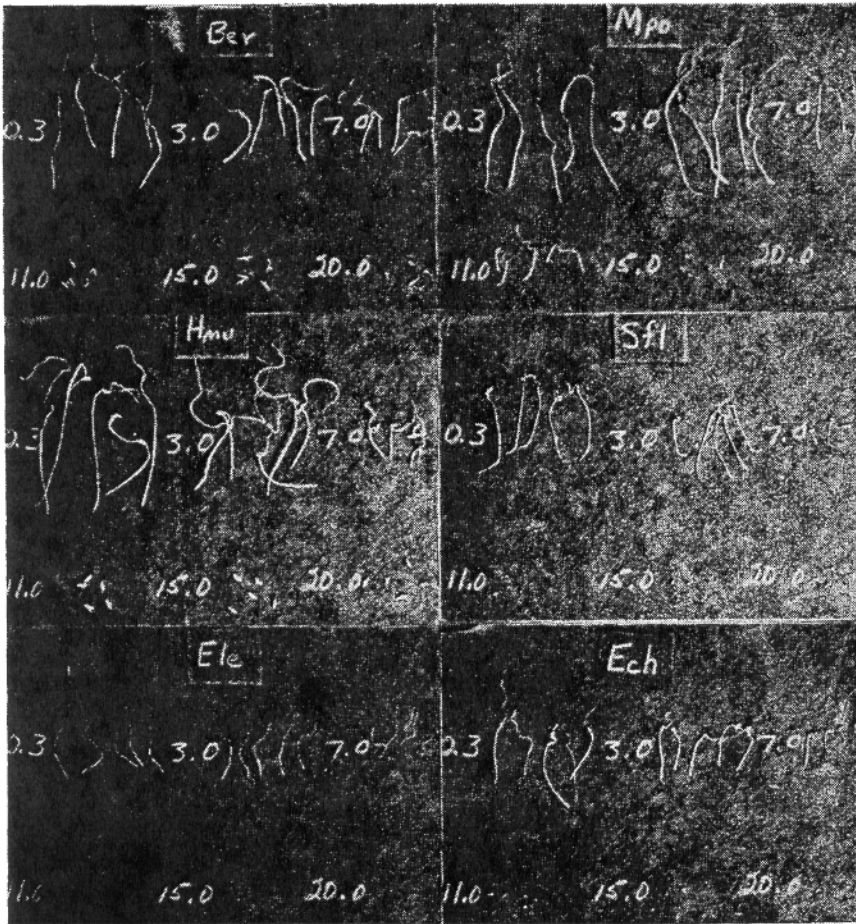 Ber
0.3 3.0 7.0
11.0 15.0 20.0
Mpo
0.3 3.0 7.0
11.0 15.0 20.0
Hmu
0.3 3.0 7.0
11.0 15.0 20.0
Sfl
0.3 3.0 7.0
11.0 15.0 20.0
Ele
0.3 3.0 7.0
11.0 15.0 20.0
Ech
0.3 3.0 7.0
11.0 15.0 20.0